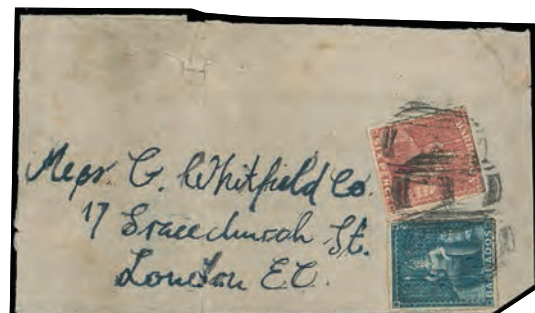 Messr. G. Whitfield Co.
17 Gracechurch St.
London E.C.
BARBADOS